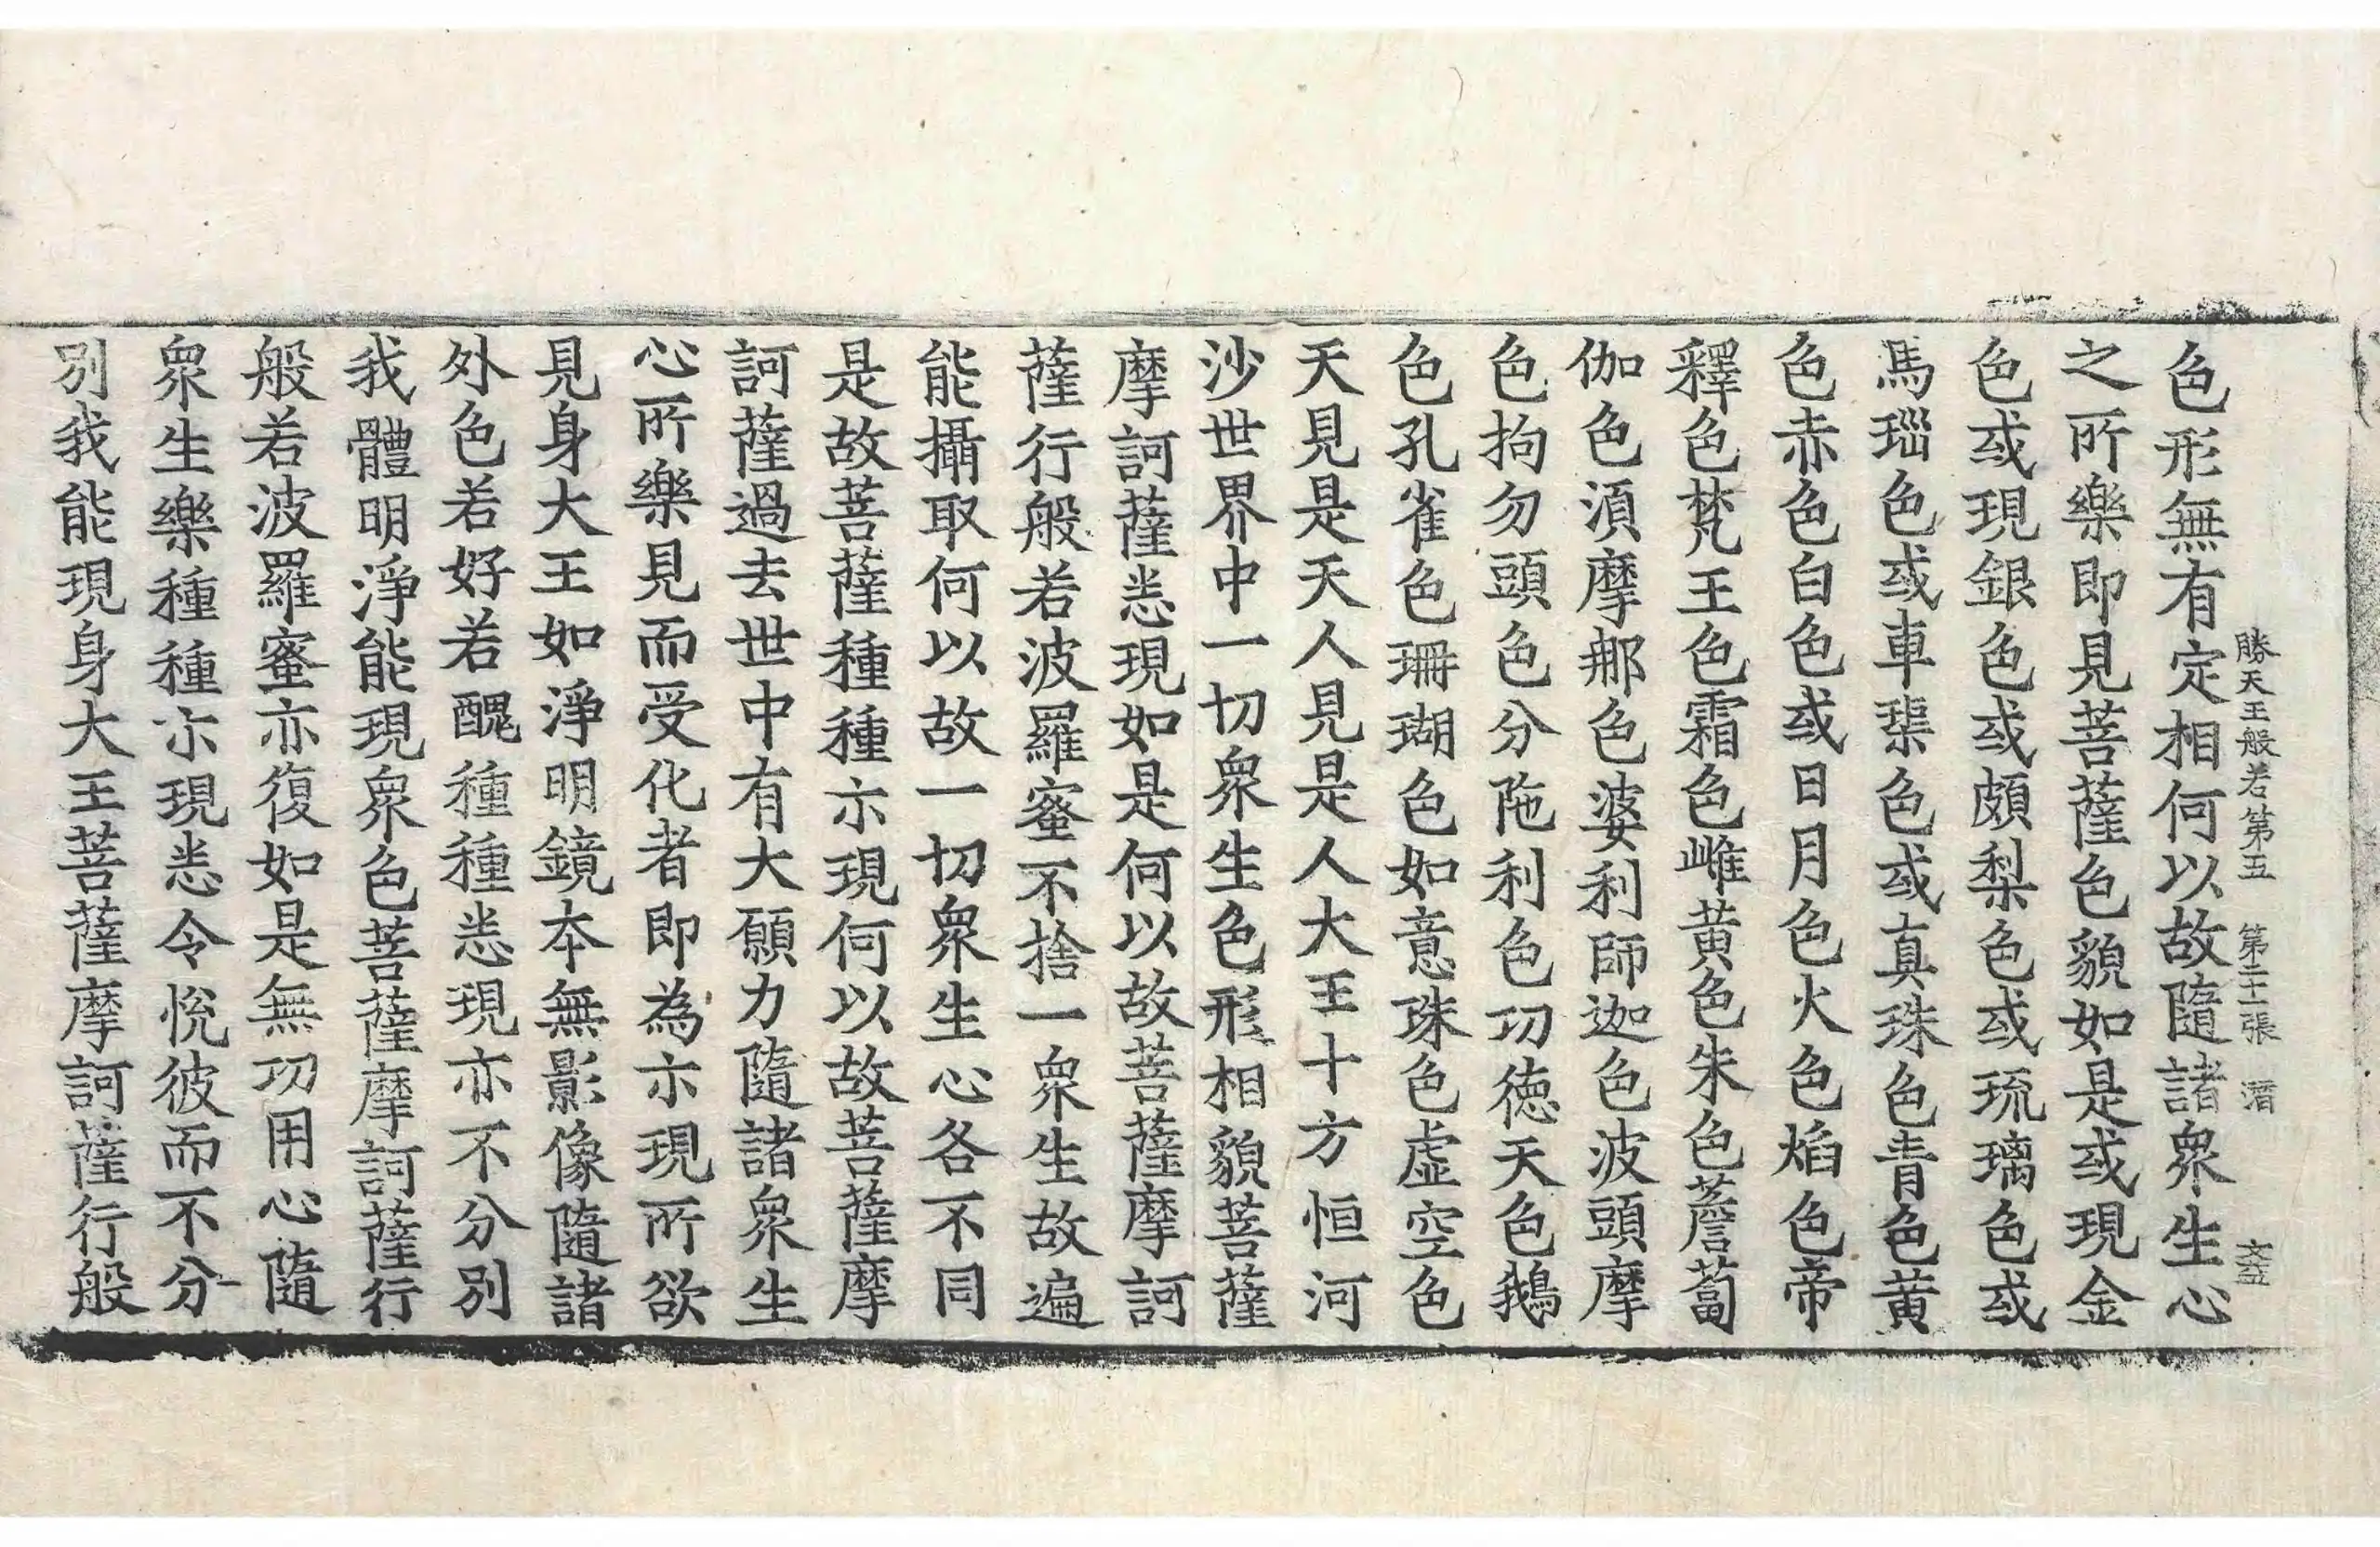 勝天王般若第五 第二十一張 潛
色形無有定相何以故隨諸衆生心
之所樂即見菩薩色貌如是或現金
色或現銀色或頗梨色或琉璃色或
馬瑙色或車璖色或真珠色青色黃
色赤色白色或日月色火色焰色帝
釋色梵王色霜色雌黃色朱色薝蔔
伽色湏摩那色婆利師迦色波頭摩
色拘勿頭色分陁利色功德天色鵝
色孔雀色珊瑚色如意珠色虛空色
天見是天人見是人大王十方恒河
沙世界中一切衆生色形相貌菩薩
摩訶薩悉現如是何以故菩薩摩訶
薩行般若波羅蜜不捨一衆生故遍
能攝取何以故一切衆生心各不同
是故菩薩種種示現何以故菩薩摩
訶薩過去世中有大願力隨諸衆生
心所樂見而受化者即為示現所欲
見身大王如淨明鏡本無影像隨諸
外色若好若醜種種悉現亦不分別
我體明淨能現衆色菩薩摩訶薩行
般若波羅蜜亦復如是無功用心隨
衆生樂種種示現悉令悅彼而不分
別我能現身大王菩薩摩訶薩行般